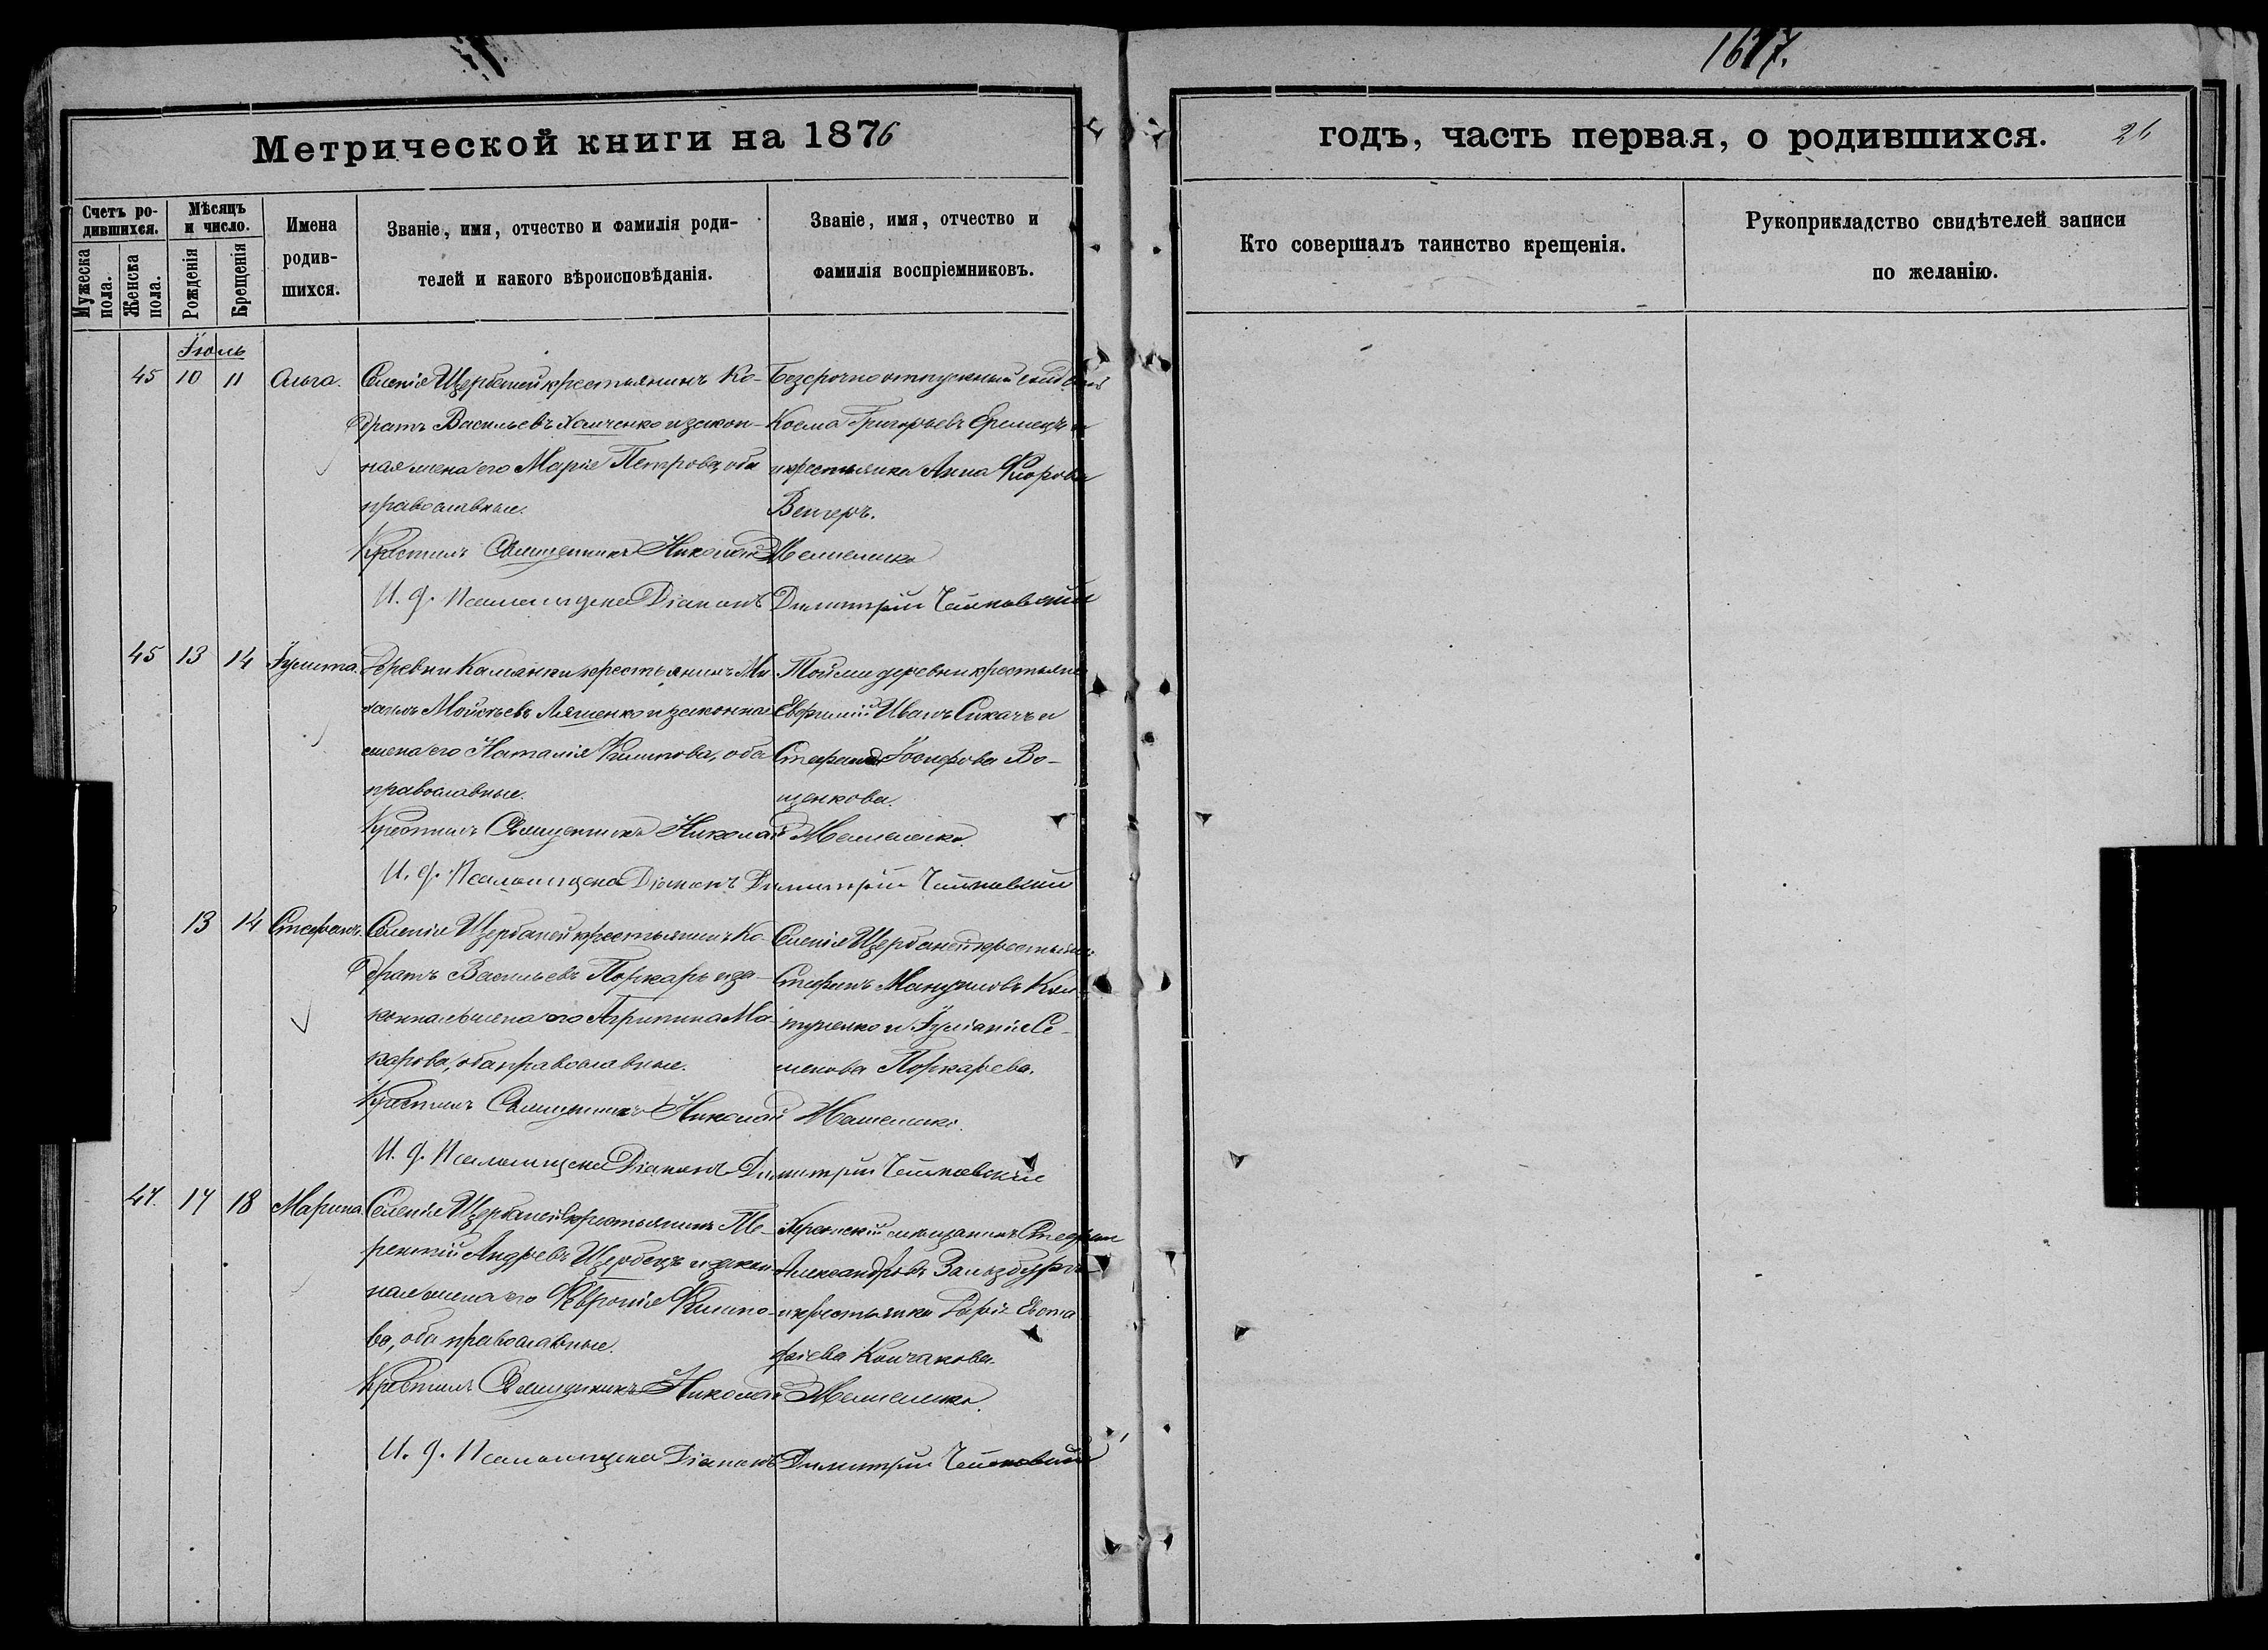 1617.
Метрической книги на 1876
годъ, часть первая, о родившихся. 26
Счетъ родившихся.
Мужеска пола.
Женска пола.
Мѣсяцъ и число.
Рожденія
Крещенія
Имена родившихся.
Званіе, имя, отчество и фамилія родителей и какого вѣроисповѣданія.
Званіе, имя, отчество и фамилія воспріемниковъ.
Кто совершалъ таинство крещенія.
Рукоприкладство свидѣтелей записи по желанію.
Іюль
45 10 11 Ольга.
Селенія Щербаней крестьянинъ Ко-
дратъ Васильевъ Ханченко и закон-
ная жена его Марія Петрова, оба
православные.
Безсрочно отпускный
Косма Григорьевъ Еремецъ
и крестьянка Анна Флорова
Венгеръ.
Крестилъ Священникъ Николай
И. д. Псаломщика Діаконъ Димитрій
45 13 14 Іулитта.
Деревни Каменки крестьянинъ Ми-
хаилъ Моисѣевъ Ляшенко и законна
жена его Наталія Филипова, оба
православные.
Той же деревни крестьяне
Евфимій Иванъ Сикачъ и
Стефанида Іосифова Во-
щенкова.
Крестилъ Священникъ Николай
И. д. Псаломщика Діаконъ Димитрій
13 14 Стефанъ.
Селенія Щербаней крестьянинъ Ко-
дратъ Васильевъ Поркарь и за-
конная жена его Агрипина Ма-
карова, оба православные.
Селенія Щербаней крестьяне
Стефанъ Мануиловъ
и Іуліанія Се-
менова Поркарева.
Крестилъ Священникъ Николай
И. д. Псаломщика Діаконъ Димитрій
47. 17 18 Марина.
Селенія Щербаней крестьянинъ Те-
рентій Андреевъ Щербецъ и закон-
ная жена его Февронія Филипо-
ва, оба православные.
Херсонскій мѣщанинъ Стефан
Александровъ Зальзбургъ
и крестьянка Дарія Евста
фіева Колчакова.
Крестилъ Священникъ Николай
И. д. Псаломщика Діаконъ Димитрій